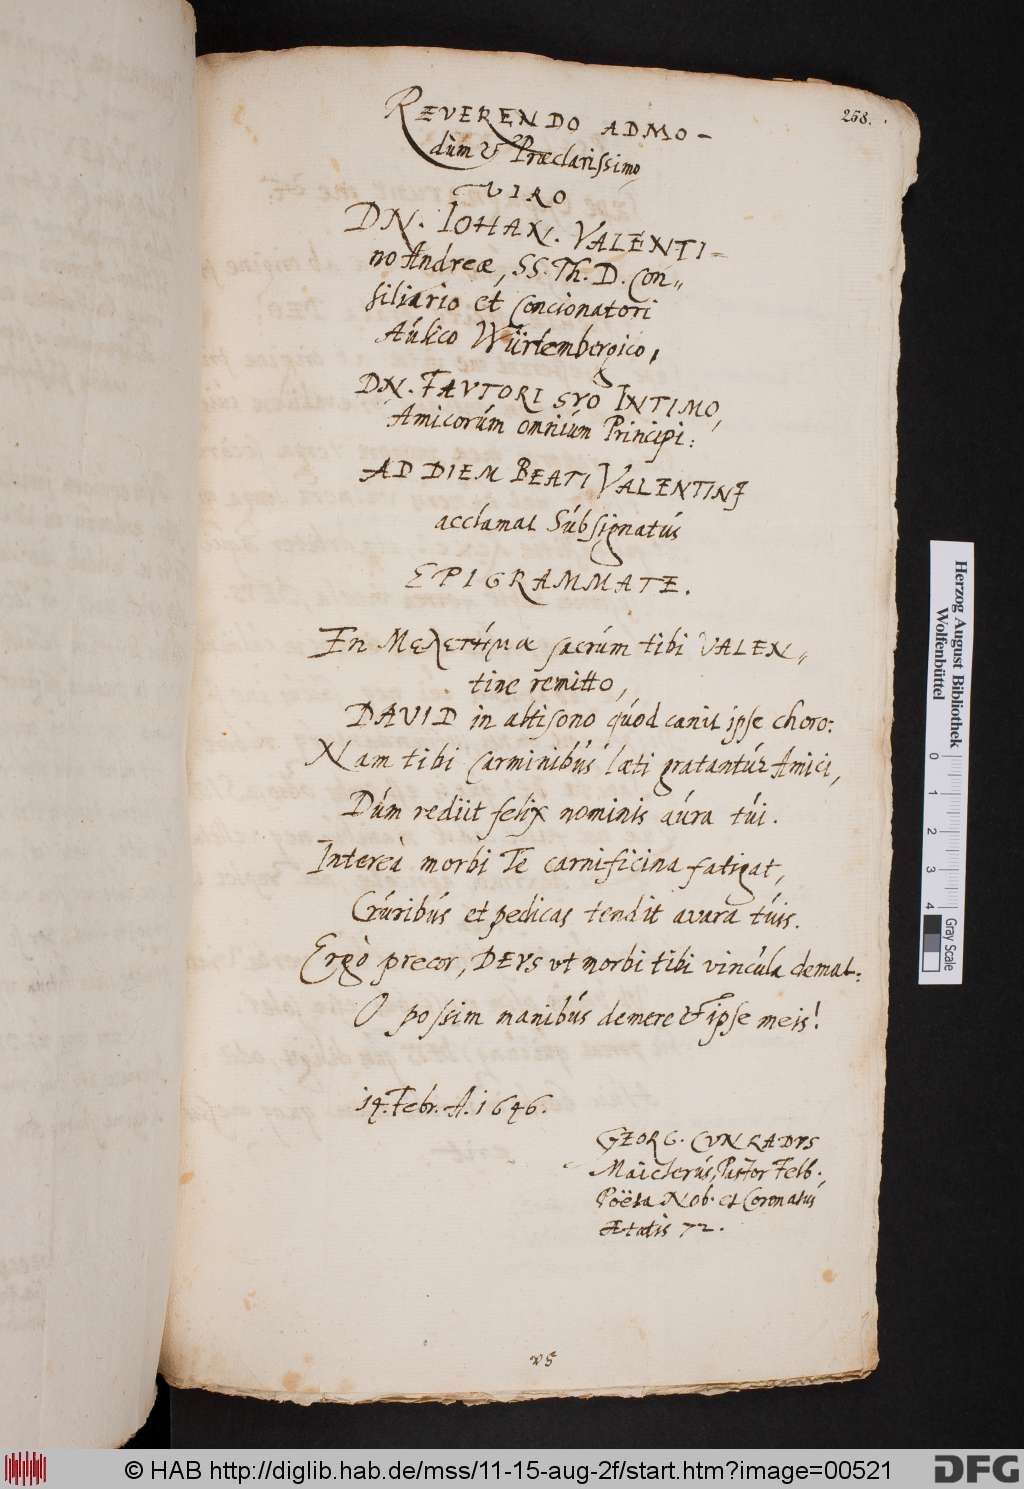 258.
REVERENDO ADMO-
dùm & Præclarissimo
VIRO
DN. IOHAN. VALENTI-
no Andreæ, SS. Th. D. Con„
siliario et Concionatori
Aúlico Würtembergico,
DN. FAVTORI SVO INTIMO,
Amicorúm omniúm Principi:
AD DIEM BEATI VALENTINI
acclamat Súbsignatús
EPIGRAMMATE.
En Μελετήμα sacrúm tibi VALEN„
tine remitto,
DAVID in altisono qúod canit ipse choro:
Nam tibi Carminibús læti gratantúr Amici,
Dúm rediit felix nominis aúra túi.
Intereà morbi Te carnificina fatigat,
Crúribús et pedicas tendit avara túis.
Ergò precor, DEVS vt morbi tibi vincúla demat:
O possim manibús demere & ipse meis!
14. Febr. A. 1646.
GEORG. CVNRADVS
Maiclerús, Pastor Felb.
Poëta Nob. et Coronatús
Ætatis 72.
vs
Herzog August Bibliothek
Wolfenbüttel
0 1 2 3 4
Gray Scale
© HAB http://diglib.hab.de/mss/11-15-aug-2f/start.htm?image=00521
DFG